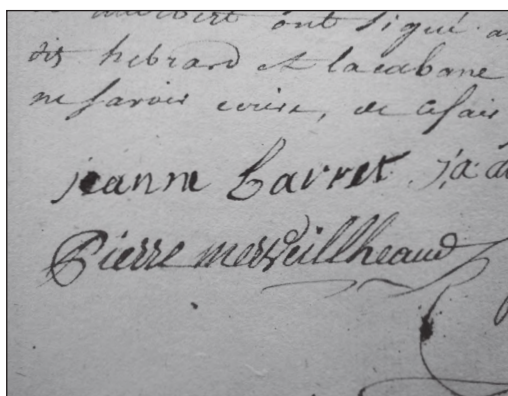 ont signé
dit hebrard et lacabane
ne savoir ecrire, de ce fair
jeanne barret
Pierre merveillheaud